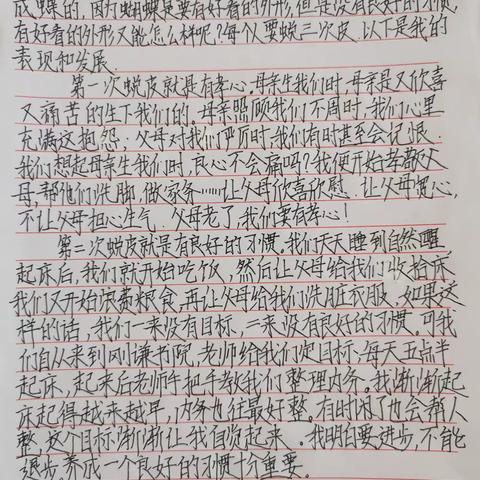 成蝶的,因为蝴蝶是要有好看的外形,但是没有良好的习惯,
有好看的外形又能怎么样呢?每个人要蜕三次皮,以下是我的
表现和发展.
第一次蜕皮就是有孝心。母亲生我们时,母亲是又欣喜
又痛苦的生下我们的。母亲照顾我们不周时,我们心里
充满这抱怨.父母对我们严厉时,我们有时甚至会记恨.
我们想起母亲生我们时,良心不会痛吗?我便开始孝敬父
母,帮他们洗脚,做家务……让父母欣喜欣慰.让父母宽心,
不让父母担心生气.父母老了,我们要有孝心!
第二次蜕皮就是有良好的习惯。我们天天睡到自然醒
起床后,我们就开始吃饭,然后让父母给我们收拾床
我们又开始浪费粮食,再让父母给我们洗脏衣服.如果这
样的话,我们一来没有目标,二来没有良好的习惯。可我
们自从来到刚谦书院,老师给我们定目标,每天五点半
起床,起来后老师手把手教我们整理内务。我渐渐起
床起得越来越早,内务也往最好整。有时闲了也会帮人
整,这个目标渐渐让我自觉起来。我明白要进步,不能
退步.养成一个良好的习惯十分重要。